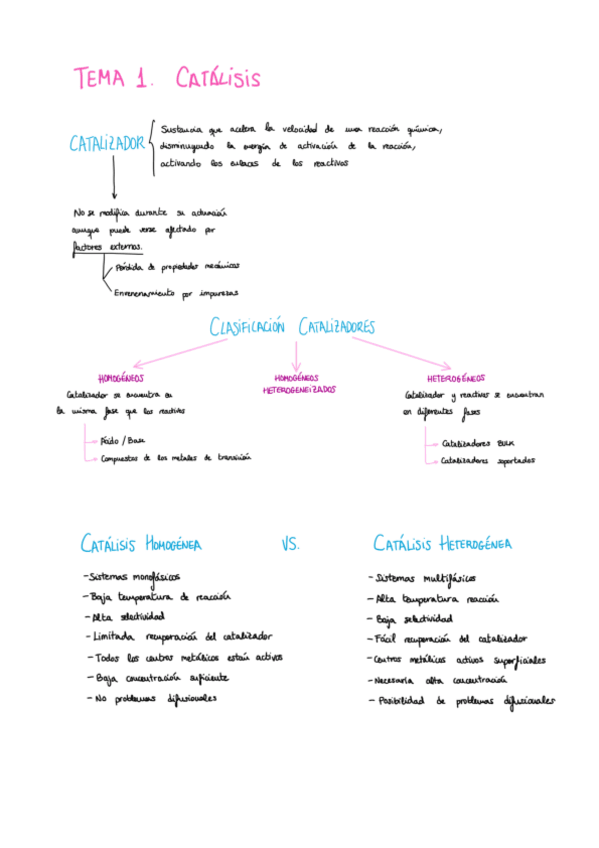 TEMA 1. CATÁLISIS
CATALIZADOR
Sustancia que acelera la velocidad de una reacción química,
disminuyendo la energía de activación de la reacción,
activando los enlaces de los reactivos
No se modifica durante su actuación
aunque puede verse afectado por
factores externos.
Pérdida de propiedades mecánicas
Envenenamiento por impurezas
CLASIFICACIÓN CATALIZADORES
HOMOGÉNEOS
Catalizador se encuentra en
la misma fase que los reactivos
Ácido / Base
Compuestos de los metales de transición
HOMOGÉNEOS
HETEROGENEIZADOS
HETEROGÉNEOS
Catalizador y reactivos se encuentran
en diferentes fases
Catalizadores BULK
Catalizadores soportados
CATÁLISIS HOMOGÉNEA VS. CATÁLISIS HETEROGÉNEA
- Sistemas monofásicos
- Baja temperatura de reacción
- Alta selectividad
- Limitada recuperación del catalizador
- Todos los centros metálicos están activos
- Baja concentración suficiente
- No problemas difusionales
- Sistemas multifásicos
- Alta temperatura reacción
- Baja selectividad
- Fácil recuperación del catalizador
- Centros metálicos activos superficiales
- Necesaria alta concentración
- Posibilidad de problemas difusionales